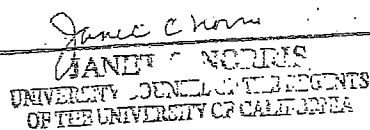 Janet C Norris
JANET C NORRIS
UNIVERSITY COUNSEL OF THE REGENTS
OF THE UNIVERSITY OF CALIFORNIA